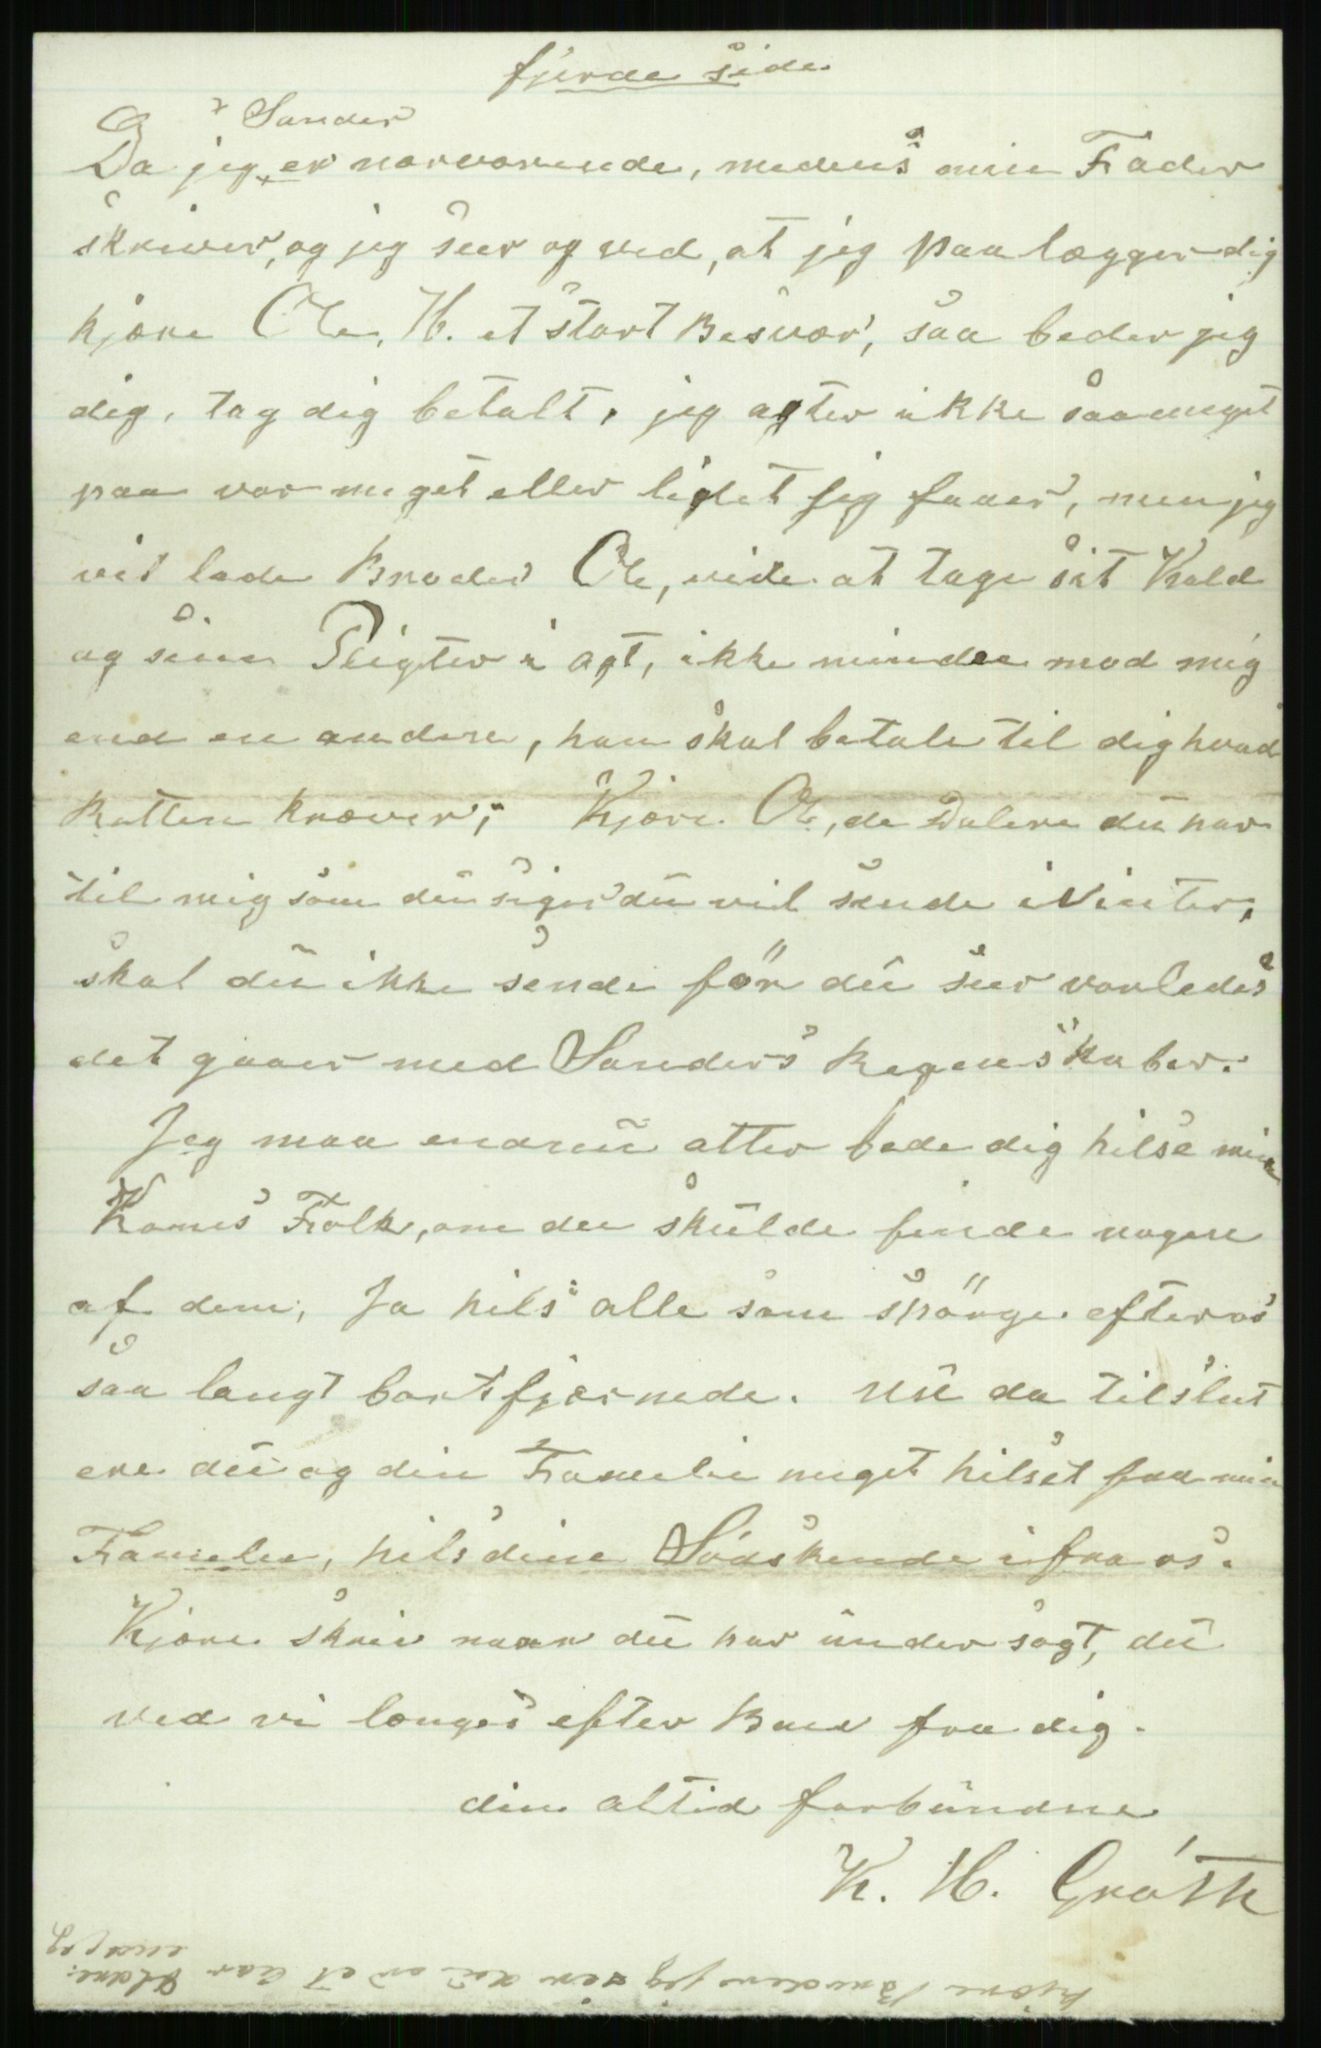 fjerde side.
Sander
Da jeg er nærværende, medens min Fader
skriver, og jeg seer og ved, at jeg paalægger dig
kjære Ole, H. et stort Besvær, saa beder jeg
dig, tag dig betalt, jeg agter ikke saa meget
paa vor meget eller lidet jeg faaer, men jeg
vil lade Broder Ole, vide at tage sit Kald
og sine Pligter i agt, ikke mindre mod mig
end en anden, han skal betale til dig hvad
Retten kræver; Kjære Ole, de Dalere du har
til mig som du siger du vil sende i Vinter,
skal du ikke sende før du seer vorledes
det gaaer med Sanders Regenskaber.
Jeg maa endnu atter bede dig hilse min
Kones Folk, om du skulde finde nogen
af dem, Ja hils alle som spörge efter os
saa langt bortfjærnede. Nu da tilslut
ere du og din Famelie meget hilset fra min
Famelie, hils dine Södskende ifra os.
Kjære skriv naar du har under sögt, du
ved vi længes efter Brev fra dig.
din altid forbundne
K. H. Gröth
kjære Broder jeg er du et Aar Ældre
end jeg